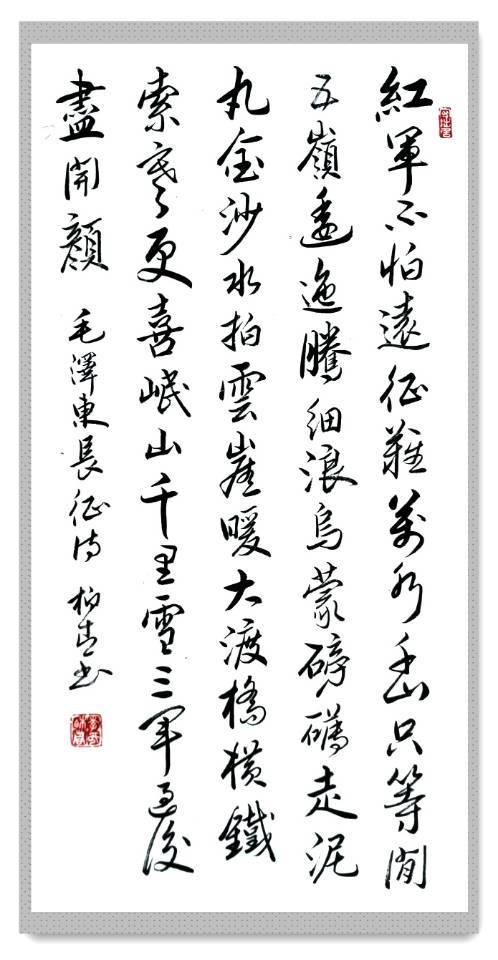 紅軍不怕遠征難萬水千山只等閒
五嶺逶迤騰細浪烏蒙磅礴走泥
丸金沙水拍雲崖暖大渡橋橫鐵
索寒更喜岷山千里雪三軍過後
盡開顏 毛澤東長征詩 柏书